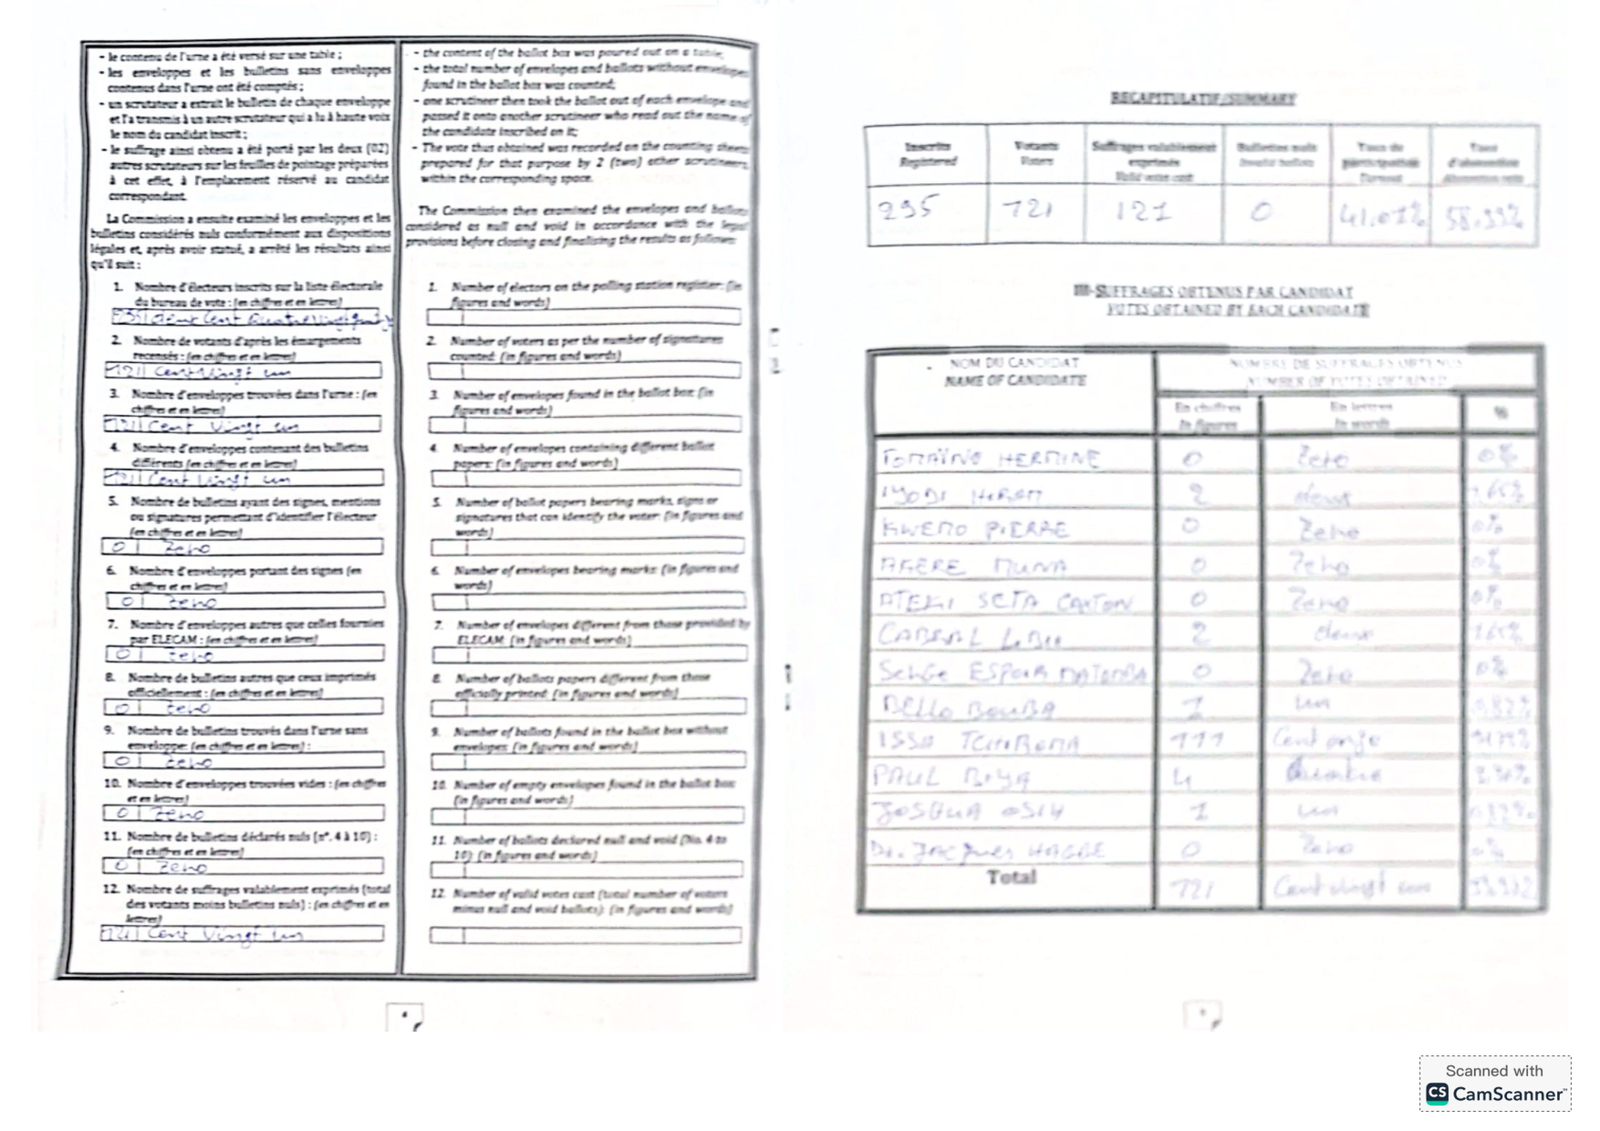 - le contenu de l'urne a été versé sur une table ;
- les enveloppes et les bulletins sans enveloppes
contenus dans l'urne ont été comptés ;
- un scrutateur a extrait le bulletin de chaque enveloppe
et l'a transmis à un autre scrutateur qui a lu à haute voix
le nom du candidat inscrit ;
- le suffrage ainsi obtenu a été porté par les deux (02)
autres scrutateurs sur les feuilles de pointage préparées
à cet effet, à l'emplacement réservé au candidat
correspondant.
La Commission a ensuite examiné les enveloppes et les
bulletins considérés nuls conformément aux dispositions
légales et, après avoir statué, a arrêté les résultats ainsi
qu'il suit :
1. Nombre d'électeurs inscrits sur la liste électorale
du bureau de vote : (en chiffres et en lettres)
295 deux Cent Quatre vingt quinze
2. Nombre de votants d'après les émargements
recensés : (en chiffres et en lettres)
121 Cent Vingt un
3. Nombre d'enveloppes trouvées dans l'urne : (en
chiffres et en lettres)
121 Cent Vingt un
4. Nombre d'enveloppes contenant des bulletins
différents (en chiffres et en lettres)
121 Cent Vingt un
5. Nombre de bulletins ayant des signes, mentions
ou signatures permettant d'identifier l'électeur
(en chiffres et en lettres)
0 Zero
6. Nombre d'enveloppes portant des signes (en
chiffres et en lettres)
0 Zero
7. Nombre d'enveloppes autres que celles fournies
par ELECAM : (en chiffres et en lettres)
0 Zero
8. Nombre de bulletins autres que ceux imprimés
officiellement : (en chiffres et en lettres)
0 Zero
9. Nombre de bulletins trouvés dans l'urne sans
enveloppe: (en chiffres et en lettres) :
0 Zero
10. Nombre d'enveloppes trouvées vides : (en chiffres
et en lettres)
0 Zero
11. Nombre de bulletins déclarés nuls (n°. 4 à 10) :
(en chiffres et en lettres)
0 Zero
12. Nombre de suffrages valablement exprimés (total
des votants moins bulletins nuls) : (en chiffres et en
lettres)
121 Cent Vingt un
- the content of the ballot box was poured out on a table,
- the total number of envelopes and ballots without envelopes
found in the ballot box was counted;
- one scrutineer then took the ballot out of each envelope and
passed it onto another scrutineer who read out the name of
the candidate inscribed on it;
- The vote thus obtained was recorded on the counting sheets
prepared for that purpose by 2 (two) other scrutineers
within the corresponding space.
The Commission then examined the envelopes and ballots
considered as null and void in accordance with the legal
provisions before closing and finalising the results as follows:
1. Number of electors on the polling station register: (in
figures and words)
2. Number of voters as per the number of signatures
counted: (in figures and words)
3. Number of envelopes found in the ballot box: (in
figures and words)
4. Number of envelopes containing different ballot
papers: (in figures and words)
5. Number of ballot papers bearing marks, signs or
signatures that can identify the voter: (in figures and
words)
6. Number of envelopes bearing marks: (in figures and
words)
7. Number of envelopes different from those provided by
ELECAM: (in figures and words)
8. Number of ballots papers different from those
officially printed: (in figures and words)
9. Number of ballots found in the ballot box without
envelopes: (in figures and words)
10. Number of empty envelopes found in the ballot box:
(in figures and words)
11. Number of ballots declared null and void (No. 4 to
10): (in figures and words)
12. Number of valid votes cast (total number of voters
minus null and void ballots): (in figures and words)
RECAPITULATIF/SUMMARY
Inscrits Registered Votants Voters Suffrages valablement exprimés Valid votes cast Bulletins nuls Invalid ballots Taux de participation Turnout Taux d'abstention Abstention rate
295 121 121 0 41.01%
III-SUFFRAGES OBTENUS PAR CANDIDAT
VOTES OBTAINED BY EACH CANDIDATE
NOM DU CANDIDAT NOMBRE DE SUFFRAGES OBTENUS
NAME OF CANDIDATE NUMBER OF VOTES OBTAINED
En chiffres In figures En lettres In words %
TOMAÏNO HERMINE 0 Zero 0%
IYODI HIRAM 2 deux 1,65%
KWEMO PIERRE 0 Zero 0%
AKERE MUNA 0 Zero 0%
ATEKI SETA CAXTON 0 Zero 0%
CABRAL LIBII 2 deux 1,65%
SERGE ESPOIR MATOMBA 0 Zero 0%
BELLO BOUBA 1 un 0,82%
ISSA TCHIROMA 111 Cent onze
PAUL BIYA 4 Quatre
JOSHUA OSIH 1 un 0,82%
Dr. JACQUES HAGBE 0 Zero 0%
Total 121 Cent vingt un
Scanned with
CS CamScanner